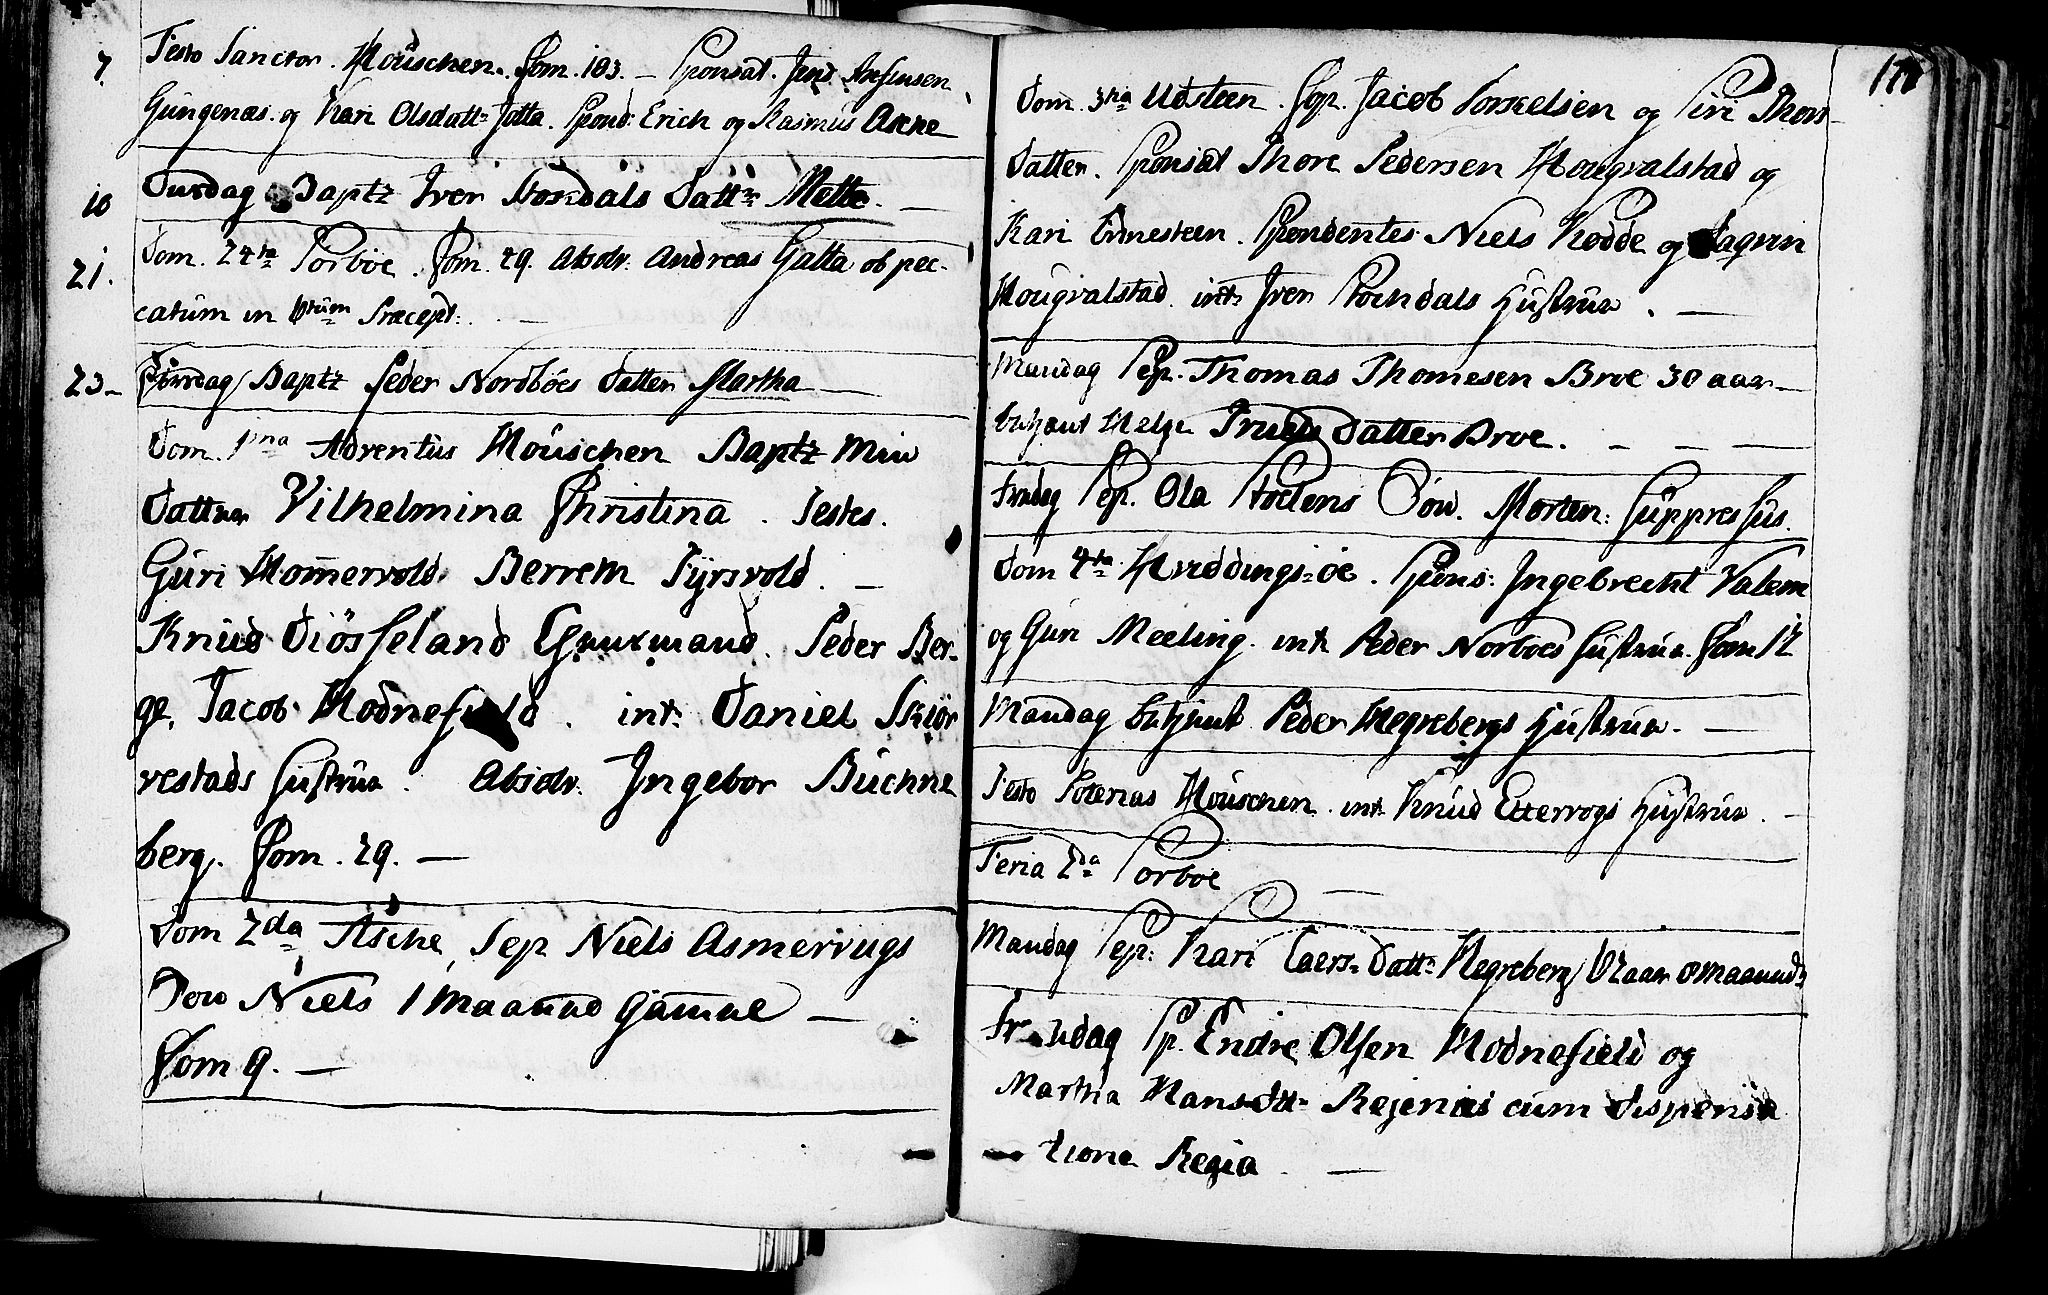 7. Festo Sanctor. Houschen. Com. 103. — Sponsat. Jens
Gungenæs. og Kari Olsdattr Jotta. Spond: Erich og Rasmus Asche
10 Tirsdag Baptz Iver Stokdals Dattr Mette. —
21. Dom. 24ta Torboe. Com. 29. Absolv: Andreas Galta ob pec-
catum in 6tum Præcept: —
23 – Baptz Peder Nordböes Datter Martha —
Dom. 1ma Adventus Houschen Baptz Min
Datter Vilhelmina Christina. Testes.
Guri Hommervold. Berrem Fÿrsvold. —
Knud Diösseland Peder Ber-
ge, Jacob Hodnefield. int: Daniel Skiör
restads Hustrue. Absolv. Ingebor Buchne
berg. Com. 29. —
Dom 2da Asche, Sep Niels Asmervugs
Sön Niels 1 Maaned gammel —
Com 9. —
177
Dom. 3tia Udsteen. Cop. Jacob Torkelsen og Siri Thors
Datter. Sponsat Thore Pedersen Hougvalstad og
Kari Ednesteen. Spondentes Niels Kodde og Dagvin
Hougvalstad. int: Iver Stokndals Hustrue. —
Mandag Sep. Thomas Thomesen Broe 30 aar —
Helge Truels Datter Broe. — — —
Sep. Ola Sön. Morten: suppressus.
Dom 4ta Hviddings-öe. Spons: Ingebrecht Valem
og Guri Meeling. int: Peder Norboes Hustrue. Com 12
Mandag Peder Hegrebergs Hustrue. —
Festo Soterias Houschen. int: Knud Ettervogs Hustrue. —
Feria 2da Torboe —
Mandag Sep: Kari Laers-Dattr Hegreberg 62 aar 8 maaneder
Endre Olsen Hodnefield og
Martha Hansdttr Regenæs cum dispensa
tione Regia. —